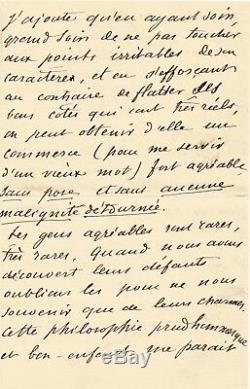 J'ajoute qu'en ayant soin,
grand soin de ne pas toucher
aux points irritables de son
caractère, et en s'efforçant
au contraire de flatter les
bons côtés qui sont très réels,
on peut obtenir d'elle un
commerce (pour me servir
d'un vieux mot) fort agréable
sans pose et sans aucune
malignité détournée.
Les gens agréables sont rares,
très rares. Quand nous avons
découvert leurs défauts
oublions les pour ne nous
souvenir que de leurs charmes.
Cette philosophie prudhommesque
et bon-enfant me parait